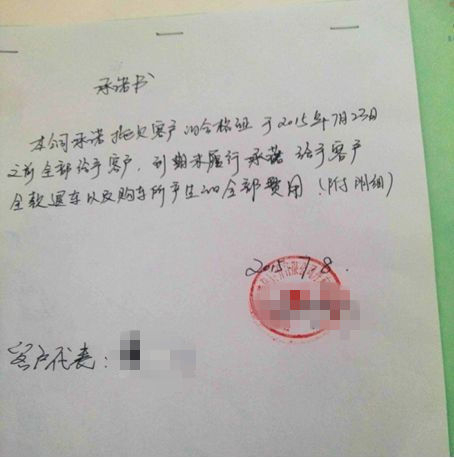 承诺书
本公司承诺拖欠客户的合格证于2015年7月23日
之前全部给予客户，到期未履行承诺给予客户
全款退车以及购车所产生的全部费用（附明细）
2015.7.8.
有限公司
客户代表：